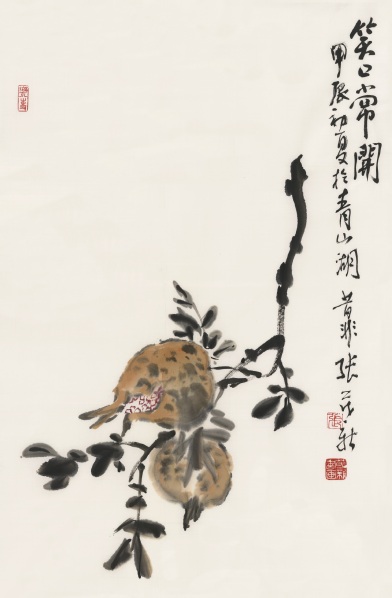 笑口常開
甲辰初夏於青山湖 昔非張